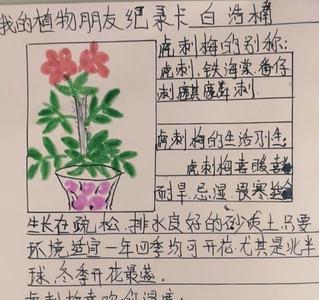 我的植物朋友纪录卡 白浩楠
虎刺梅的别称:
虎刺.铁海棠.番仔
刺.麒麟刺.
虎刺梅的生活习性:
虎刺梅喜暖喜
耐旱.忌湿.畏寒
生长在疏,松.排水良好的砂质土.只要
环境适宜一年四季均可开花.尤其是北半
球.冬季开花最盛.
虎刺梅喜欢的温度: